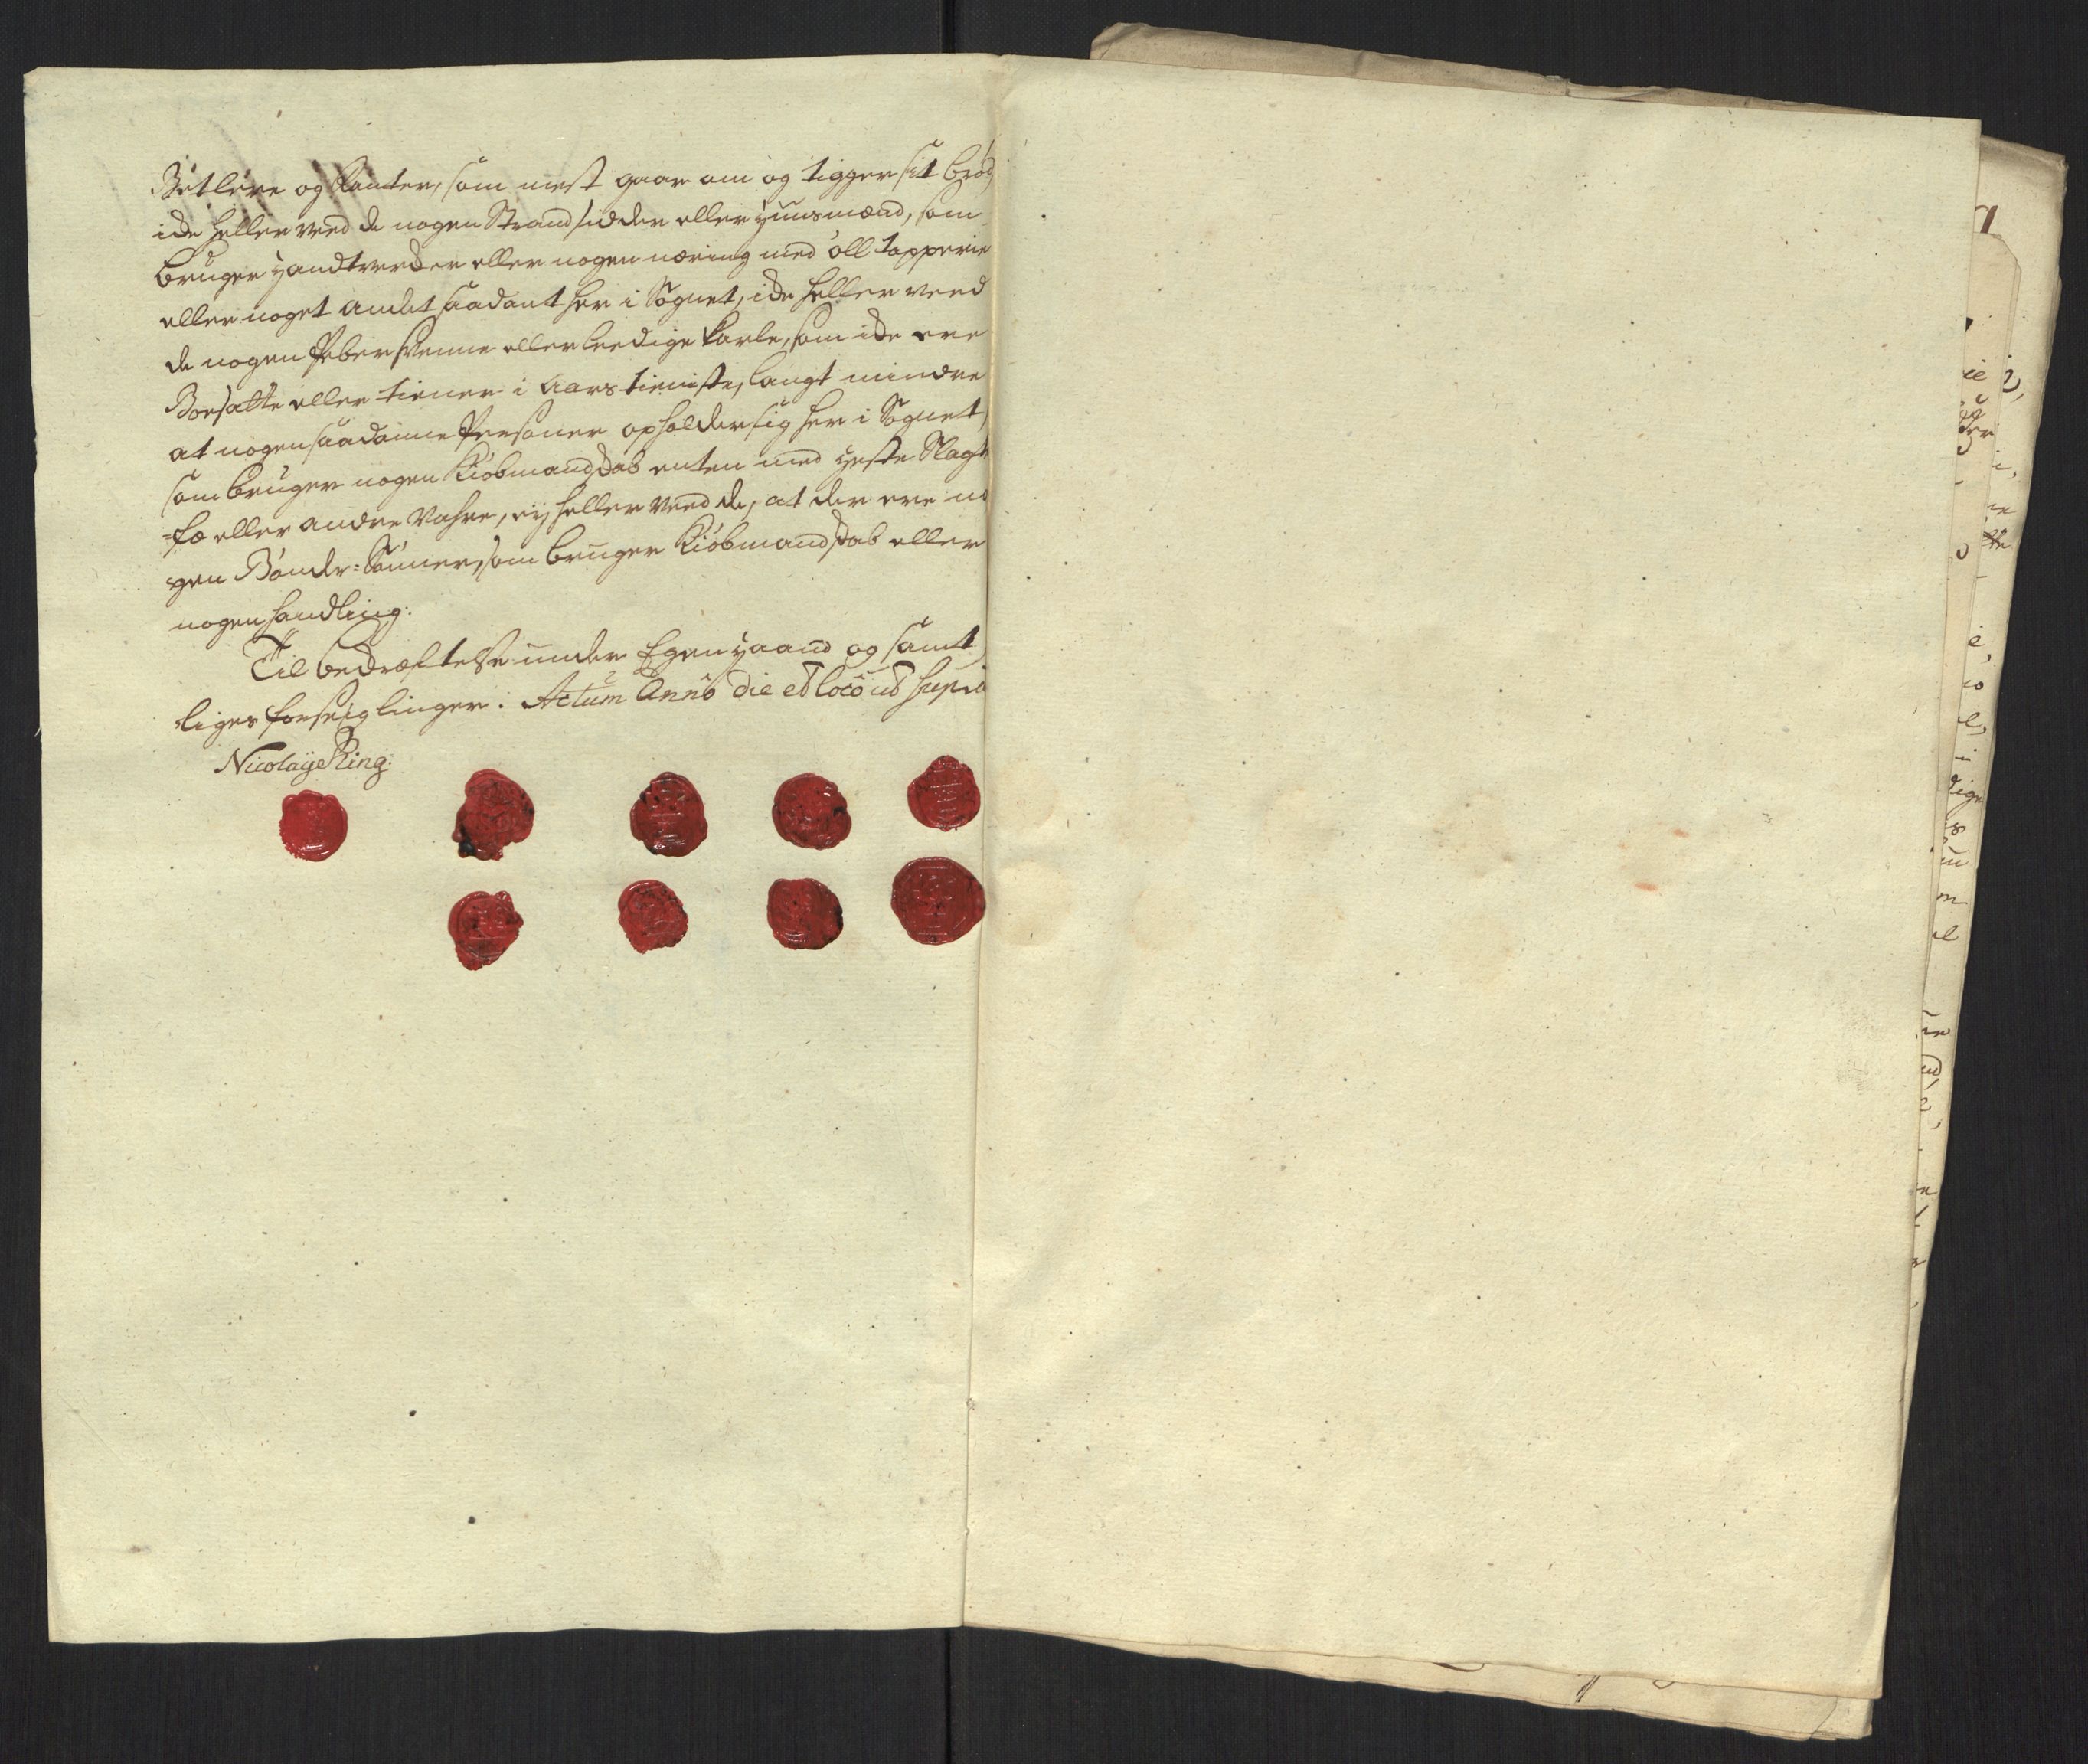 Betlere og Fanter, som mest gaar om og tigger sit brød
icke heller veed de nogen Strandsidder eller Huusmænd, som
bruger Handtverker eller nogen næring med öll tapperie
eller noget andet saadant her i Sognet, icke heller veed
de nogen Pebersvenne eller leedige Karle, som icke ere
Boesatte eller tiener i Aars tieniste, langt mindre
at nogen saadanne Personer opholder sig her i Sognet,
som bruger nogen Kiøbmandskab enten med Heste Slagt
=fæ eller andre Vahre, ey heller veed de, at der ere no
gen Bønder=Sønner, som bruger Kiøbmandskab eller
nogen handling:
Til bekræftelse under Egen Haand og samt
liges forseiglinger. Actum Anno die et loco ut supra
Nicolaye Ring: